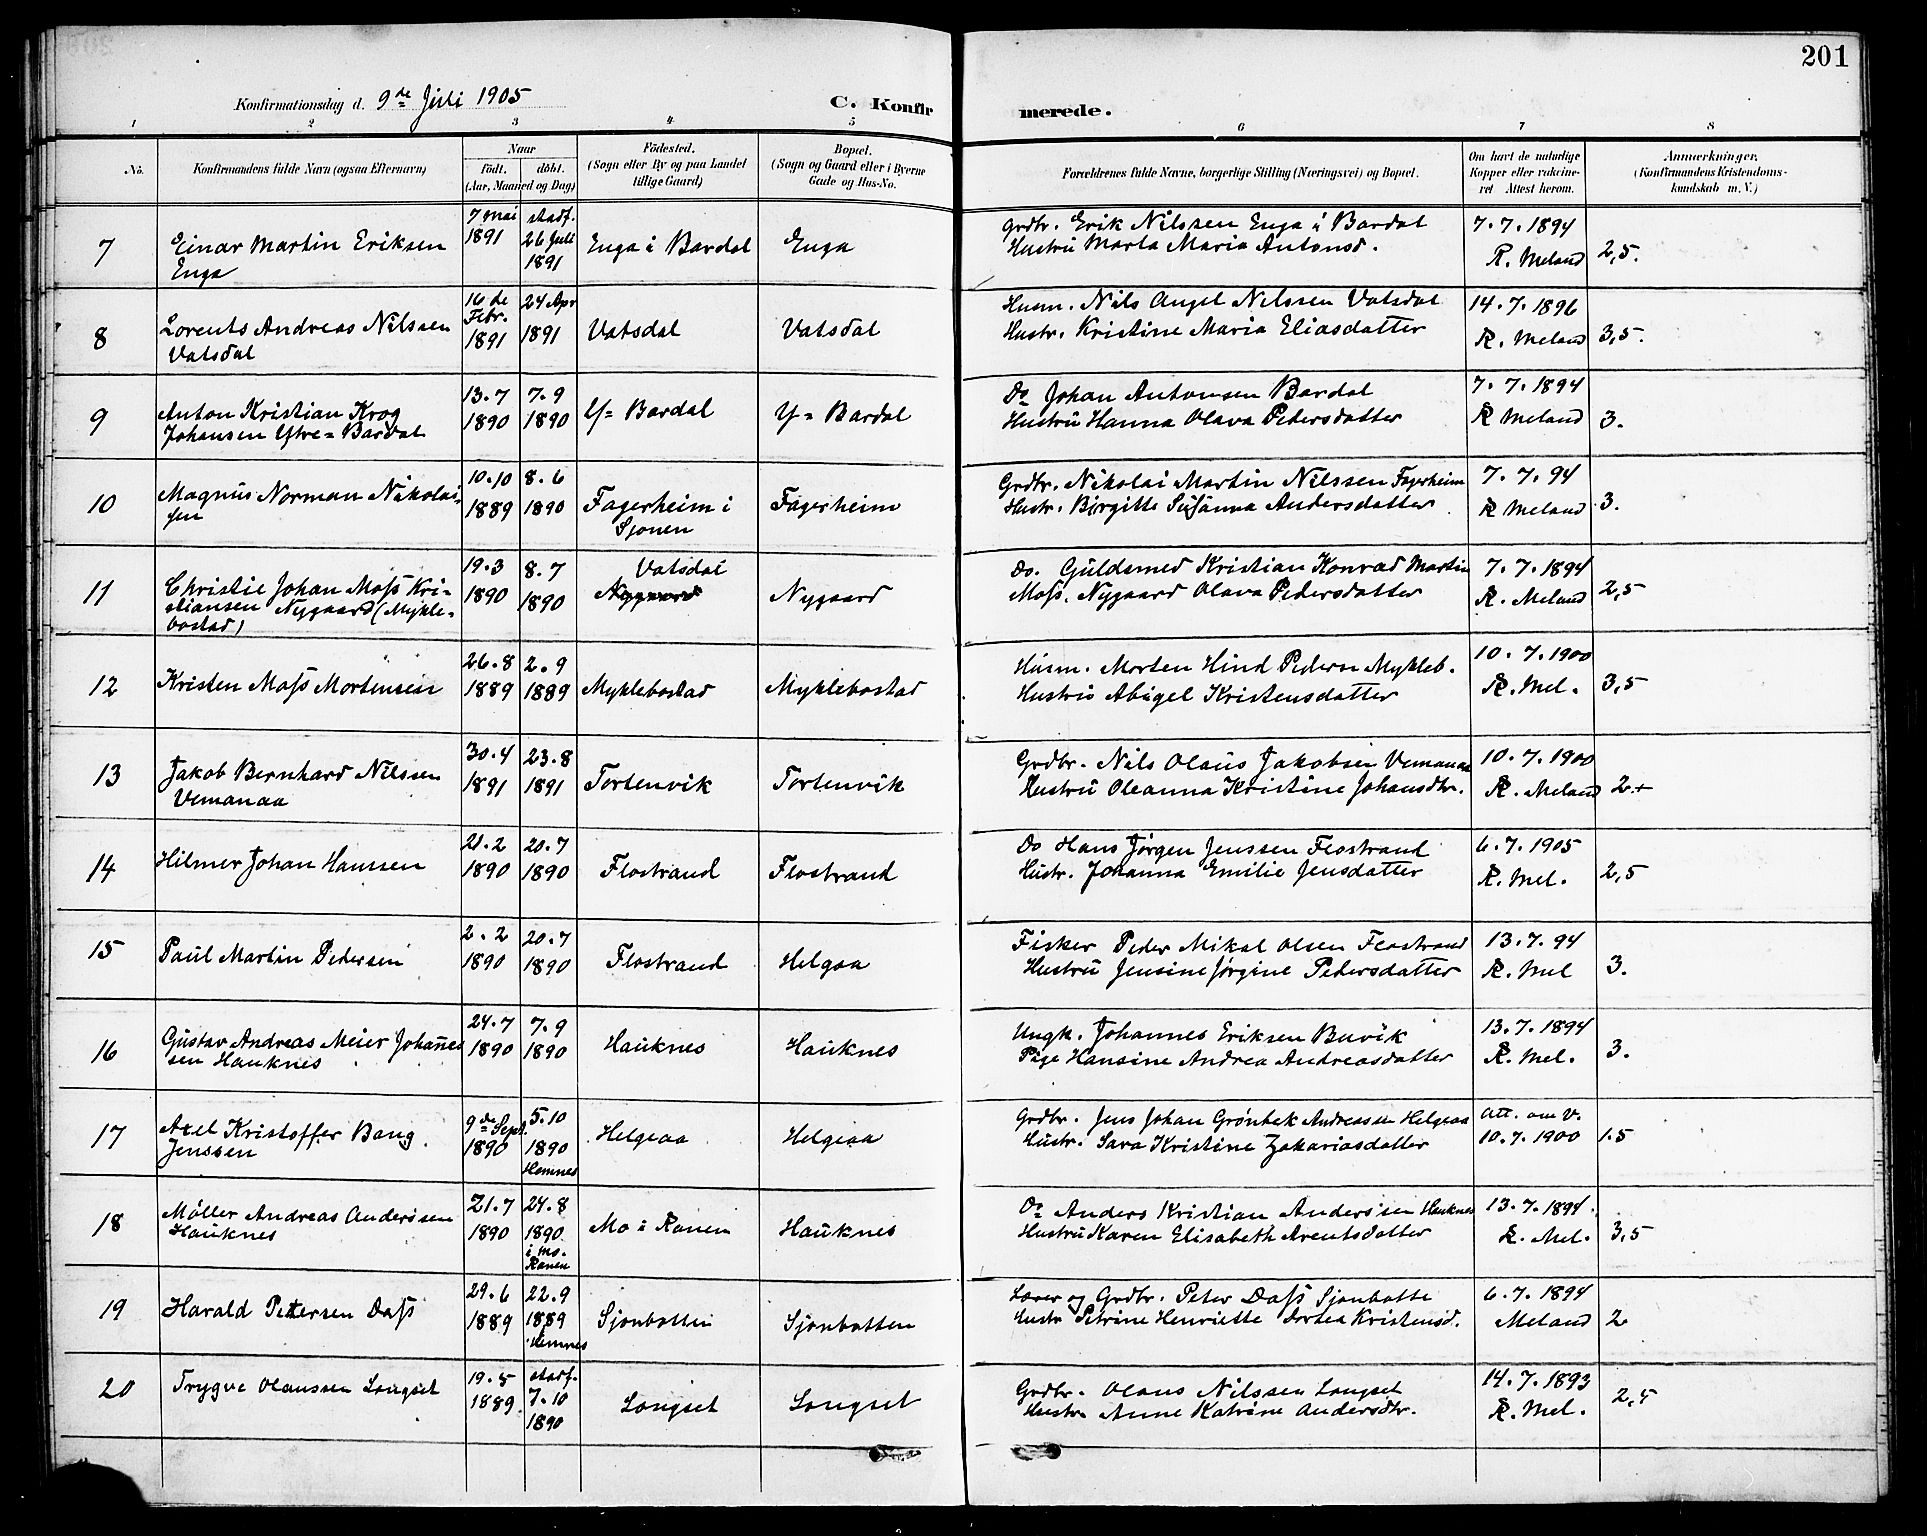 201
Konfirmationsdag d. 9de Juli 1905
C. Konfirmerede.
1 2 3 4 5 6 7 8
No.
Konfirmandens fulde Navn (ogsaa Efternavn)
Naar
födt. döbt.
(Aar, Maaned og Dag)
Födested.
(Sogn eller By og paa Landet
tillige Gaard)
Bopæl.
(Sogn og Gaard eller i Byerne
Gade og Hus-No.
Forældrenes fulde Navne, borgerlige Stilling (Næringsvei) og Bopæl.
Om havt de naturlige
Kopper eller vakcine-
ret Attest herom.
Anmærkninger.
(Konfirmandens Kristendoms-
kundskab m. V.)
7
Einar Martin Eriksen
Enga
7 Mai
1891
stadf.
26 Juli
1891
Enga i Bardal
Enga
Grdbr. Erik Nilssen Enga i Bardal
Hustru Marta Maria Antonsd.
7.7.1894
R. Meland
2,5.
8
Lorents Andreas Nilssen
Vatsdal
16 de
Febr.
1891
24 Apr
1891
Vatsdal
Vatsdal
Husm. Nils Angel Nilssen Vatsdal
Hustr. Kristine Maria Eliasdatter
14.7.1896
R. Meland
3,5.
9
Anton Kristian Krog
Johansen Ytre=Bardal
13.7
1890
7.9
1890
Y= Bardal
Y= Bardal
Do Johan Antonsen Bardal
Hustru Hanna Olava Pedersdatter
7.7.1894
R Meland
3.
10
Magnus Norman Nikolai-
sen
10.10
1889
8.6
1890
Fagerheim i
Sjonen
Fagerheim
Grdbr. Nikolai Martin Nilssen Fagerheim
Hustr. Birgitte Susanna Andersdatter
7.7.94
R Meland
3.
11
Christie Johan Moss Kri-
stiansen Nygaard (Mykle-
bostad)
19.3
1890
8.7
1890
Vatsdal
Nygaard
Nygaard
Do. Guldsmed Kristian Konrad Martin
Moss. Nygaard Olava Pedersdatter
7.7.1894
R. Meland
2,5
12
Kristen Moss Mortensen
26.8
1889
2.9
1889
Myklebostad
Myklebostad
Husm. Morten Hind Peders Mykleb.
Hustru Abigel Kristensdatter
10.7.1900
R. Mel.
3,5
13
Jakob Bernhard Nilssen
Vemanaa
30.4
1891
23.8
1891
Tortenvik
Tortenvik
Grdbr. Nils Olaus Jakobsen Vemanaa
Hustru Oleanna Kristine Johansdtr.
10.7.1900
R. Meland
2+
14
Hilmer Johan Hanssen
21.2
1890
20.7
1890
Flostrand
Flostrand
Do Hans Jørgen Jenssen Flostrand
Hustr. Johanna Emilie Jensdatter
6.7.1905
R. Mel.
2,5
15
Paul Martin Pedersen
2.2
1890
20.7
1890
Flostrand
Helgaa
Fisker Peder Mikal Olsen Flostrand
Hustru Jensine Jørgine Pedersdatter
13.7.94
R. Mel
3.
16
Gustav Andreas Meier Johannes
sen Hauknes
24.7
1890
7.9
1890
Hauknes
Hauknes
Ungk. Johannes Eriksen Buvik
Pige Hansine Andrea Andreasdatter
13.7.1894
R. Mel.
3.
17
Axel Kristoffer Bang
Jenssen
9de Sept.
1890
5.10
1890
Hemnes
Helgeaa
Helgeaa
Grdbr. Jens Johan Grønbek Andreassen Helgeaa
Hustr. Sara Kristine Zakariasdatter
Att. om V.
10.7.1900
1.5
18
Møller Andreas Anderssen
Hauknes
21.7
1890
24.8
1890
i Mo.
Ranen
Mo i Ranen
Hauknes
Do Anders Kristian Anderssen Hauknes
Hustru Karen Elisabeth Arentsdatter
13.7.1894.
R. Mel.
3,5
19
Harald Pettersen Dass
29.6
1889
22.9
1889
Hemnes
Sjonbotten
Sjonbotten
Lærer og Grdbr. Peter Dass Sjonbotte
Hustr Petrine Henriette Dortea Kristensd.
6.7.1894
Meland
2
20
Trygve Olaussen Langset
19.5
1889.
stadf.
7.10
1890
Langset
Langset
Grdbr. Olaus Nilssen Langset
Hustr. Anne Katrine Andersdtr.
14.7.1893
R. Mel.
2,5